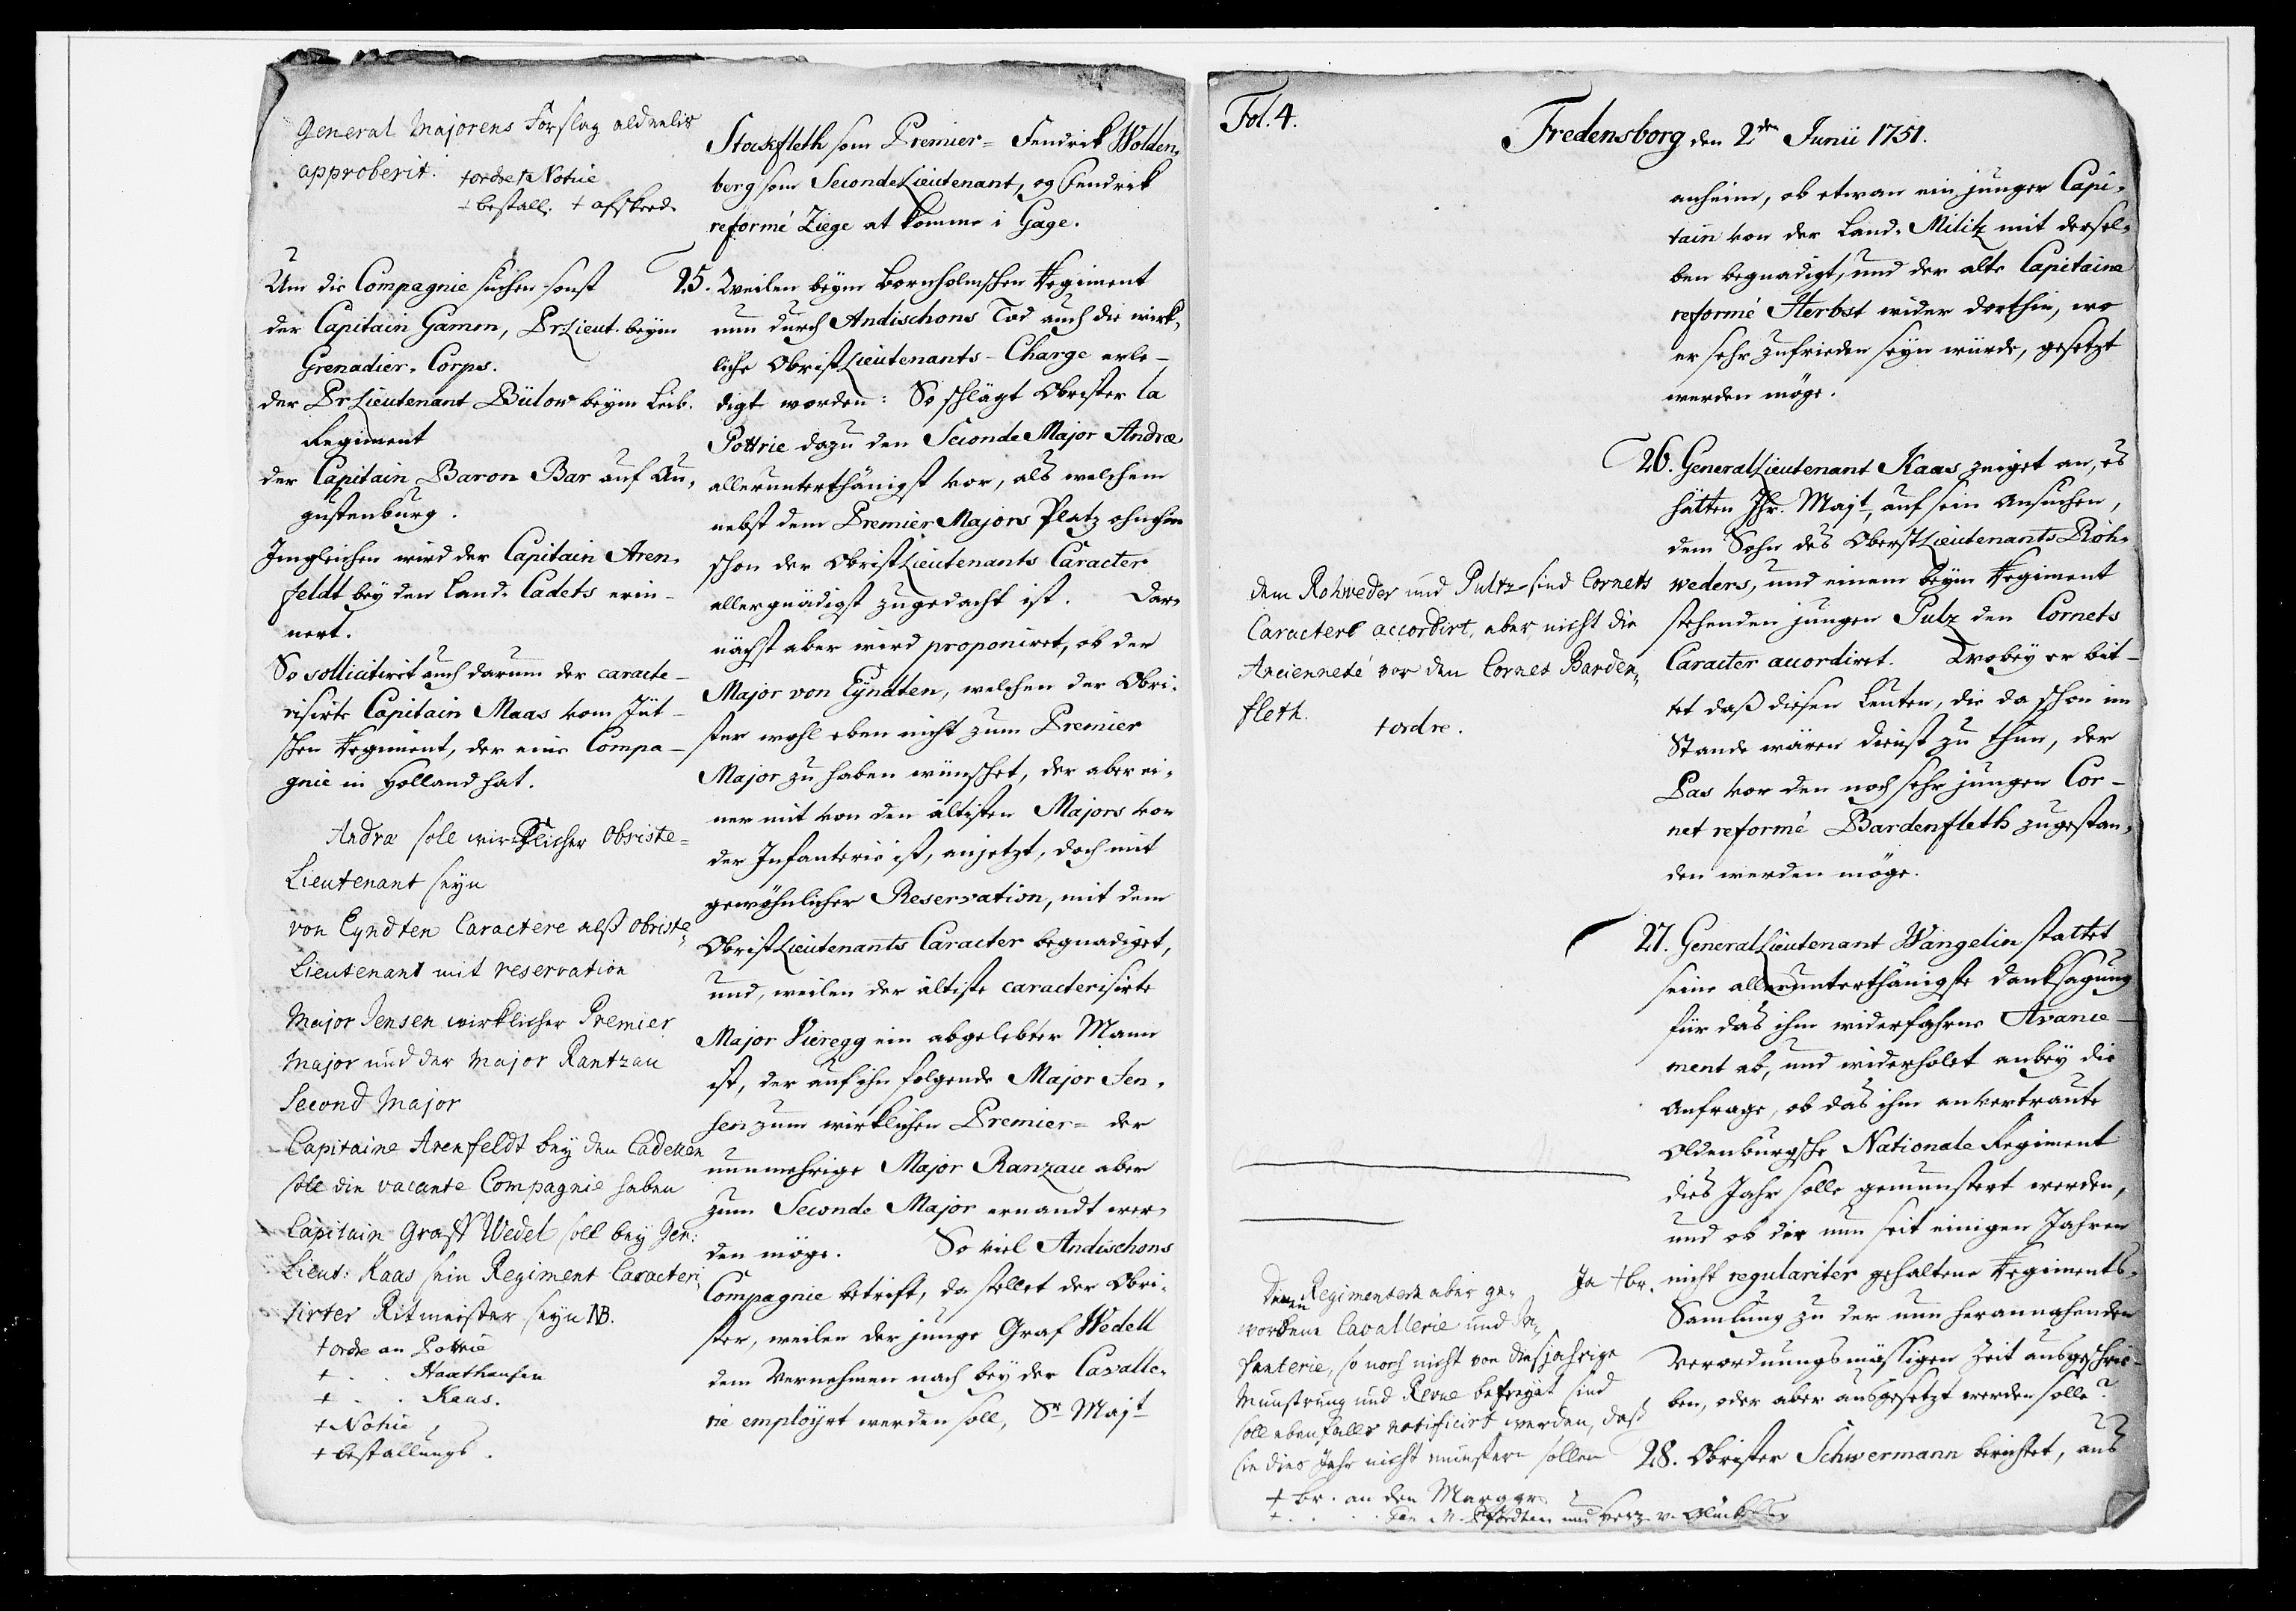 General Majorens Forslag aldeelis
approberit.
+ordre +a Notice
+bestall. + afskeed.
Um die Compagnie suchen sonst
der Capitain Gamm, PrLieut. beym
Grenadier-Corps.
der PrLieutenant Bülow beym Leib-
Regiment
der Capitain Baron Bar auf Au-
gustenburg.
Imgleichen wird der Capitain Aren-
feldt bey den Land-Cadets erin-
nert.
So solliciteret auch darum der caracte-
risirte Capitain Maas vom Jüt-
schen Regiment, der eine Compa-
gnie in Holland hat.
Andræ soll wirklicher Obriste-
Lieutenant seyn
von Eyndten Caractere alß Obriste-
Lieutenant mit reservation
Major Jensen wirklicher Premier
Major und der Major Rantzau
Second Major
Capitaine Arenfeldt bey den Cadetten
soll die vacante Compagnie haben
Capitain Graff Wedel soll bey Gen:
Lieut: Kaas sein Regiment Caracteri-
sirter Ritmeister seyn NB.
+ ordre an Pottrie
+ . . Haxthausen
+ . . Kaas.
+ Notice
+ bestallungs.
Stockfleth som Premier- Fendrik Wolden-
berg som SecondeLieutenant, og Fendrik
reformé Ziege at komme i Gage.
25. Weilen beym Bornholmschen Regiment
nun durch Andischons Tod auch die wirk-
liche ObristLieutenants-Charge erle-
digt worden: So schlägt Obrister la
Pottrie dazu den Seconde Major Andræ
allerunterthänigst vor, als welchem
nebst dem Premier Majors Platz ohnehin
schon der ObristLieutenants Caracter
allergnädigst zugedacht ist. Dar-
nächst aber wird proponiret, ob der
Major von Eyndten, welchen der Obri-
ster wohl eben nicht zum Premier
Major zu haben wünschet, der aber ei-
ner mit von den ältisten Majors von
der Infanterie ist, anjetzt, doch mit
gewöhnlicher Reservation, mit dem
ObristLieutenants Caracter begnadiget,
und, weilen der ältiste caracterisirte
Major Vieregg ein abgelebter Mann
ist, der auf ihn folgende Major Jen-
sen zum wirklichen Premier- der
nunmehrige Major Ranzau aber
zum Seconde Major ernandt wer-
den möge. So viel Andischons
Compagnie betrift, da stellet der Obri-
ster, weilen der junge Graf Wedell
dem Vernehmen nach bey der Cavalle-
rie employirt werden soll, Sr Majt
Fol. 4.
Fredensborg den 2den Junii 1751.
anheim, ob etwan ein junger Capi-
tain von der Land-Militz mit dersel-
ben begnadigt, und der alte Capitaine
reformé Herbst wider dorthin, wo
er sehr zufrieden seyn würde, gesetzt
werden möge.
26. GeneralLieutenant Kaas zeiget an, es
hätten Ihr. Majt, auf sein Ansuchen,
dem Sohn des OberstLieutenants Roh-
weders, und einem beym Regiment
stehenden jungen Pulz den Cornets
Caracter accordiret. Wobey er bit-
tet daß diesen Leuten, die da schon im
Stande wären Dienst zu thun, der
Pas vor den noch sehr jungen Cor-
net reformé Bardenfleth zugestan-
den werden möge.
dem Rohweder und Pultz sind Cornets
Caractere accordirt, aber nicht die
Ancienneté vor den Cornet Barden-
fleth.
+ordre.
27. GeneralLieutenant Wangelin stattet
seine allerunterthänigste Danksagung
für das ihm widerfahrne Avance-
ment ab, und widerholet anbey die
Anfrage, ob das ihm anvertraute
Oldenburgsche Nationale Regiment
dies Jahr solle gemunstert werden,
und ob die nun seit einigen Jahren
nicht regulariter gehaltene Regiments-
Samlung zu der nun herannahenden
Verordnungsmässigen Zeit ausgeschrie-
ben, oder aber ausgesetzt werden solle?
Ja +br.
Denen Regimentern aber ge-
worbene Cavallerie und In-
fanterie, so noch nicht von diesjahrige
Munstrung und Revue befreyet sind
soll ebenfalls notificirt werden, daß
sie dies Jahr nicht munstern sollen
+ br. an den Marggr.
28. Obrister Schwermann berichtet, aus